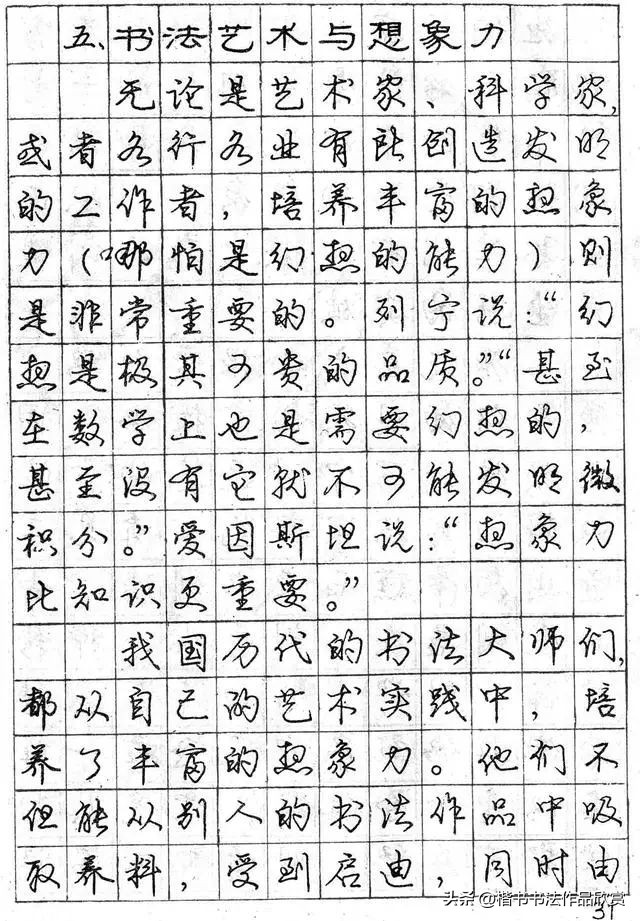 五、书法艺术与想象力
无论是艺术家、科学家,
或者各行各业有所创造发明
的工作者，培养丰富的想象
力（哪怕是幻想的能力）则
是非常重要的。列宁说：“幻
想是极其可贵的品质。”“甚至
在数学上也是需要幻想的，
甚至没有它就不可能发明微
积分。”爱因斯坦说：“想象力
比知识更重要。”
我国历代的书法大师们,
都从自己的艺术实践中，培
养了丰富的想象力。他们不
但能从别人的书法作品中吸
取养料，受到启迪，同时由
头条@楷书书法作品欣赏
31